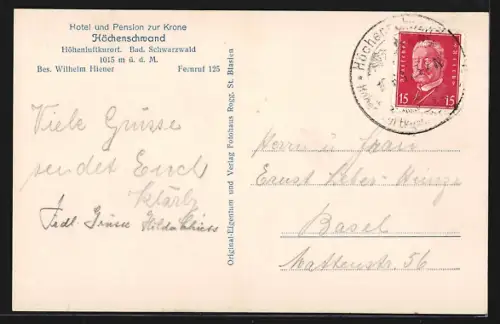 Hotel und Pension zur Krone
Höchenschwand
Höhenluftkurort. Bad. Schwarzwald
1015 m ü. d. M.
Bes. Wilhelm Hiener Fernruf 125
Viele Grüsse
sendet Euch
Frdl. Grüsse
Original-Eigentum und Verlag Fotohaus Rogg, St. Blasien
Höchen
15 15
Herrn u. Frau
Ernst
Basel
Mattenstr. 56